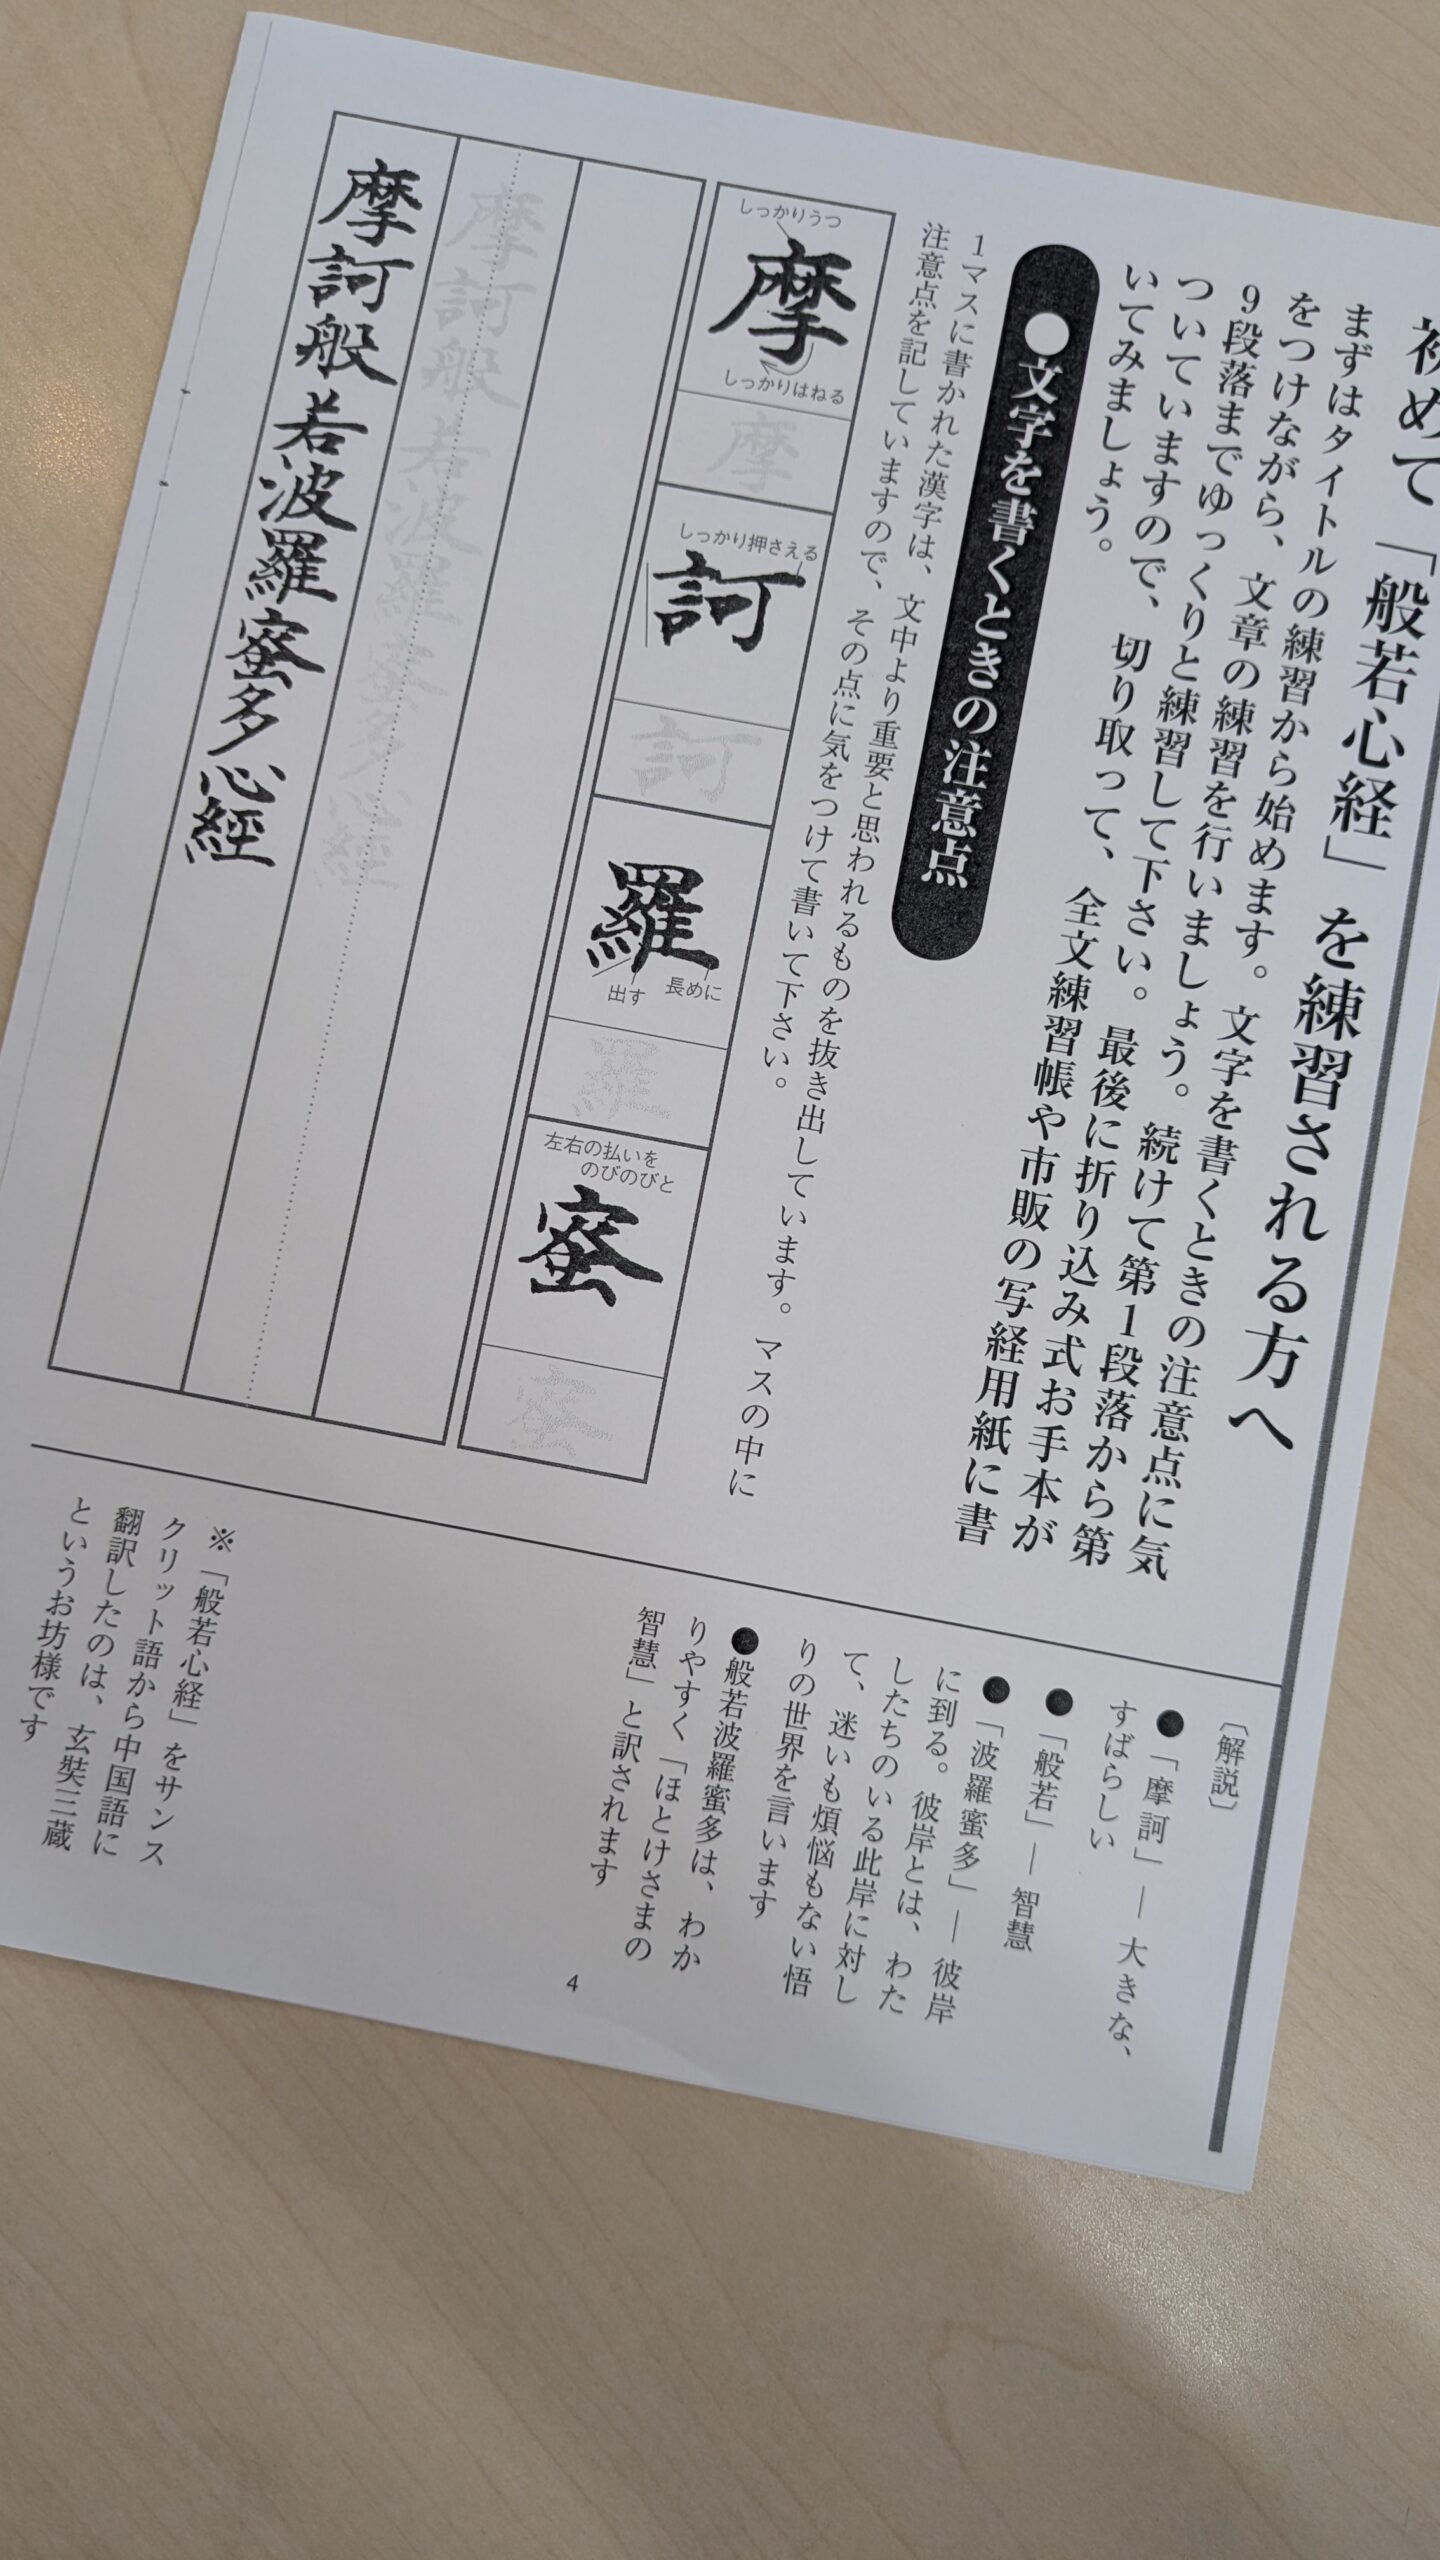 初めて「般若心経」を練習される方へ
まずはタイトルの練習から始めます。文字を書くときの注意点に気
をつけながら、文章の練習を行いましょう。続けて第1段落から第
9段落までゆっくりと練習して下さい。最後に折り込み式お手本が
ついていますので、切り取って、全文練習帳や市販の写経用紙に書
いてみましょう。
●文字を書くときの注意点
1マスに書かれた漢字は、文中より重要と思われるものを抜き出しています。マスの中に
注意点を記していますので、その点に気をつけて書いて下さい。
しっかりうつ
摩
しっかりはねる
摩
しっかり押さえる
訶
訶
羅
出す
長めに
羅
左右の払いを
のびのびと
蜜
蜜
摩訶般若波羅蜜多心経
摩訶般若波羅蜜多心経
〔解説〕
●「摩訶」― 大きな、
すばらしい
●「般若」― 智慧
●「波羅蜜多」― 彼岸
に到る。彼岸とは、わた
したちのいる此岸に対し
て、迷いも煩悩もない悟
りの世界を言います
●般若波羅蜜多は、わか
りやすく「ほとけさまの
智慧」と訳されます
※「般若心経」をサンス
クリット語から中国語に
翻訳したのは、玄奘三蔵
というお坊様です
4